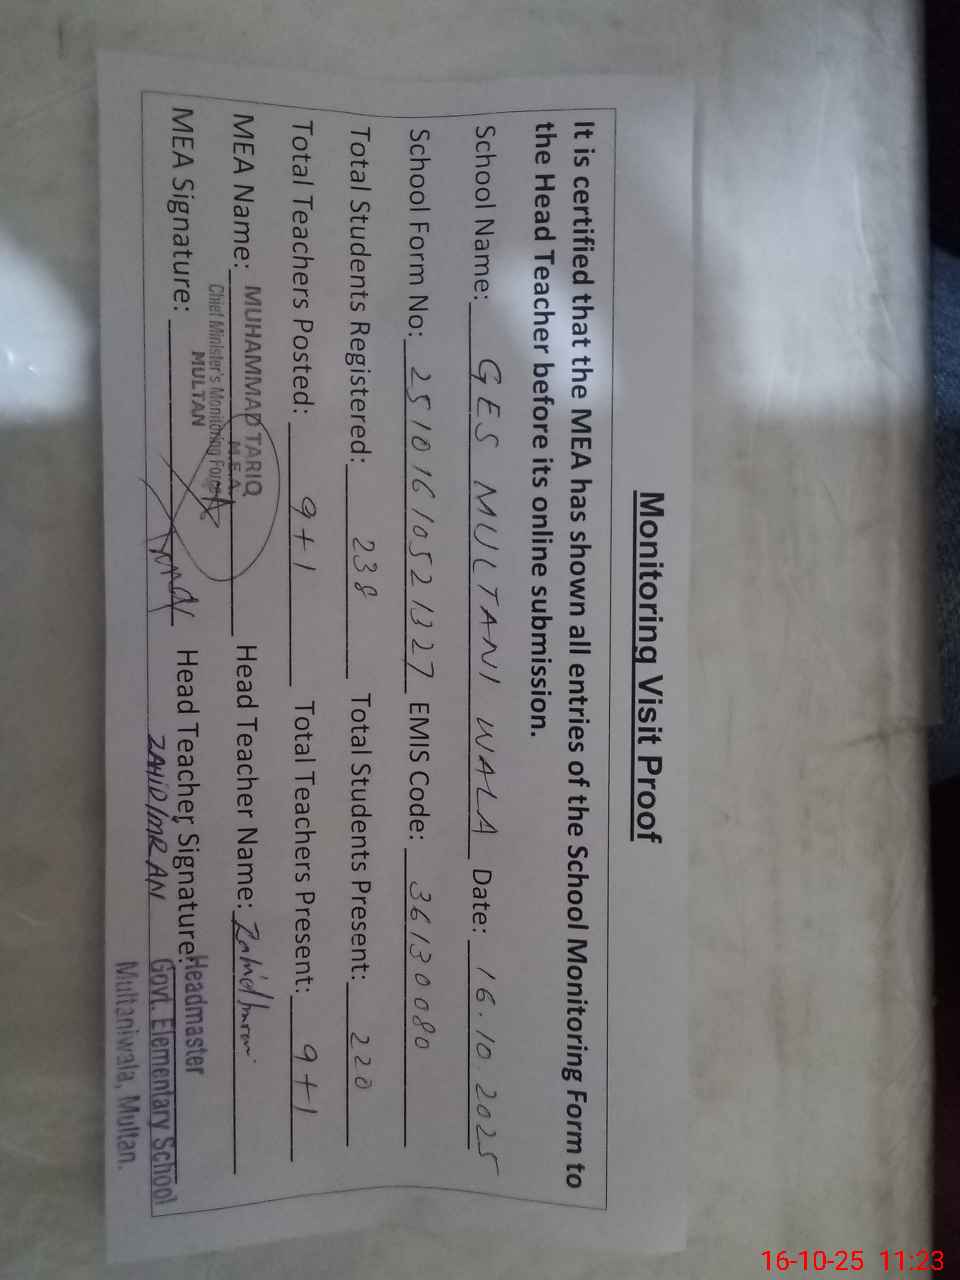 Monitoring Visit Proof
It is certified that the MEA has shown all entries of the School Monitoring Form to
the Head Teacher before its online submission.
School Name: GES MULTANI WALA Date: 16.10.2025
School Form No: 25101610521327 EMIS Code: 36130080
Total Students Registered: 238 Total Students Present: 220
Total Teachers Posted: 9+1 Total Teachers Present: 9+1
MEA Name: MUHAMMAD TARIQ Head Teacher Name: Zahid Imran
M.E.A
Chief Minister's Monitoring Force
MULTAN
MEA Signature: Head Teacher Signature:
ZAHID IMRAN
Headmaster
Govt. Elementary School
Multaniwala, Multan.
16-10-25 11:23